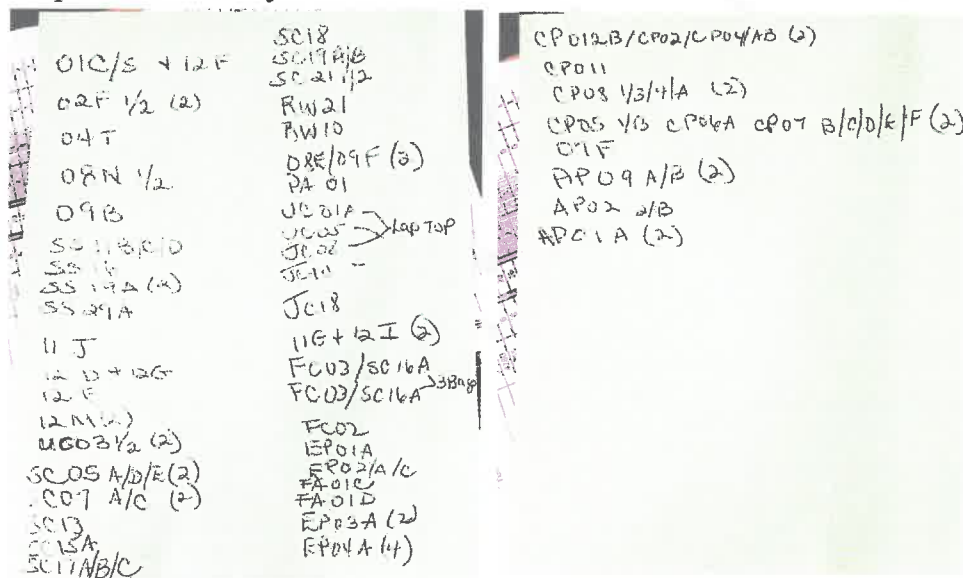 01C/S + 12F
02F 1/2 (2)
04T
08N 1/2
09B
SS 11B/C/D
SS 19A (2)
SS 29A
11 J
12 D + 12G
12 F
12M(2)
UC03 1/2 (2)
SC05 A/D/E(2)
C07 A/C (2)
SC13
SC17A/B/C
SC18
SC19A/B
SC21 1/2
RW21
RW10
08E/09F (2)
PA 01
UC01A
UC05
JC08
Lap Top
JC18
11G + 12I (2)
FC03/SC16A
FC03/SC16A
3Bags
FC02
EP01A
EP02/A/C
FA01C
FA01D
EP03A (2)
EP04A (4)
CP012B/CP02/CP04/AB (2)
CP011
CP08 1/3/4/A (2)
CP05 1/B CP06A CP07 B/C/D/E/F (2)
07F
AP09 A/B (2)
AP02 2/B
AP01A (2)